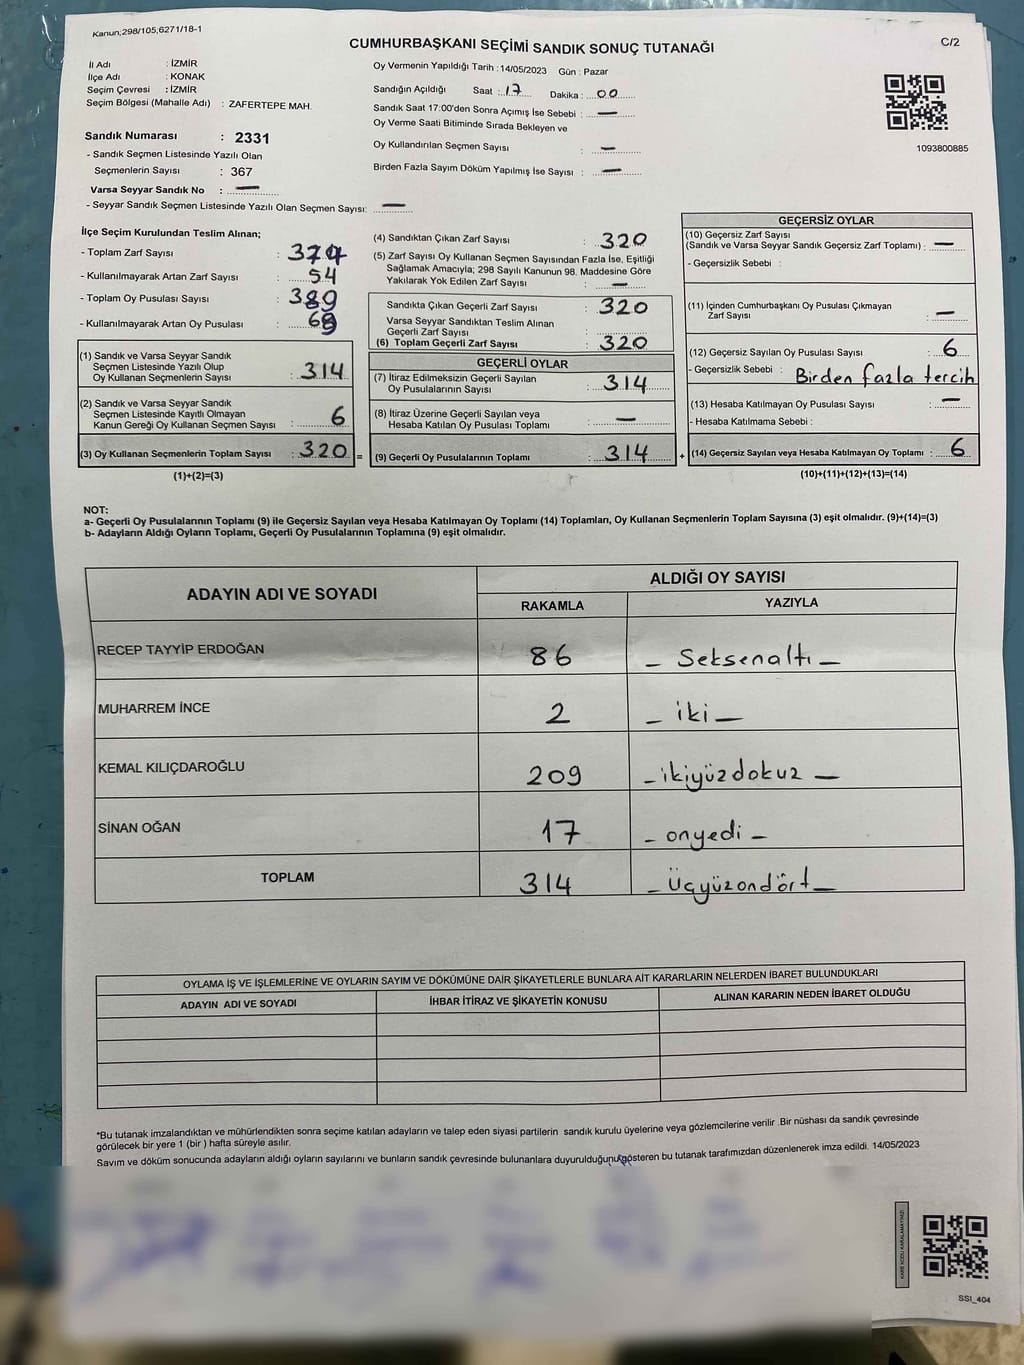 Kanun;298/105;6271/18-1
C/2
CUMHURBAŞKANI SEÇİMİ SANDIK SONUÇ TUTANAĞI
İl Adı : İZMİR
İlçe Adı : KONAK
Seçim Çevresi : İZMİR
Seçim Bölgesi (Mahalle Adı) : ZAFERTEPE MAH.
Sandık Numarası : 2331
- Sandık Seçmen Listesinde Yazılı Olan
Seçmenlerin Sayısı : 367
Varsa Seyyar Sandık No : —
- Seyyar Sandık Seçmen Listesinde Yazılı Olan Seçmen Sayısı: —
Oy Vermenin Yapıldığı Tarih : 14/05/2023 Gün : Pazar
Sandığın Açıldığı Saat : 17 Dakika : 00
Sandık Saat 17:00'den Sonra Açımış İse Sebebi : —
Oy Verme Saati Bitiminde Sırada Bekleyen ve
Oy Kullandırılan Seçmen Sayısı : —
Birden Fazla Sayım Döküm Yapılmış İse Sayısı : —
1093800885
İlçe Seçim Kurulundan Teslim Alınan;
- Toplam Zarf Sayısı : 374
- Kullanılmayarak Artan Zarf Sayısı : 54
- Toplam Oy Pusulası Sayısı : 389
- Kullanılmayarak Artan Oy Pusulası :
(1) Sandık ve Varsa Seyyar Sandık
Seçmen Listesinde Yazılı Olup
Oy Kullanan Seçmenlerin Sayısı : 314
(2) Sandık ve Varsa Seyyar Sandık
Seçmen Listesinde Kayıtlı Olmayan
Kanun Gereği Oy Kullanan Seçmen Sayısı : 6
(3) Oy Kullanan Seçmenlerin Toplam Sayısı : 320 =
(1)+(2)=(3)
(4) Sandıktan Çıkan Zarf Sayısı : 320
(5) Zarf Sayısı Oy Kullanan Seçmen Sayısından Fazla İse, Eşitliği
Sağlamak Amacıyla; 298 Sayılı Kanunun 98. Maddesine Göre
Yakılarak Yok Edilen Zarf Sayısı : —
Sandıkta Çıkan Geçerli Zarf Sayısı : 320
Varsa Seyyar Sandıktan Teslim Alınan
Geçerli Zarf Sayısı :
(6) Toplam Geçerli Zarf Sayısı : 320
GEÇERLİ OYLAR
(7) İtiraz Edilmeksizin Geçerli Sayılan
Oy Pusulalarının Sayısı : 314
(8) İtiraz Üzerine Geçerli Sayılan veya
Hesaba Katılan Oy Pusulası Toplamı : —
(9) Geçerli Oy Pusulalarının Toplamı : 314 +
GEÇERSİZ OYLAR
(10) Geçersiz Zarf Sayısı
(Sandık ve Varsa Seyyar Sandık Geçersiz Zarf Toplamı) : —
- Geçersizlik Sebebi :
(11) İçinden Cumhurbaşkanı Oy Pusulası Çıkmayan
Zarf Sayısı : —
(12) Geçersiz Sayılan Oy Pusulası Sayısı : 6
- Geçersizlik Sebebi : Birden fazla tercih
(13) Hesaba Katılmayan Oy Pusulası Sayısı : —
- Hesaba Katılmama Sebebi :
(14) Geçersiz Sayılan veya Hesaba Katılmayan Oy Toplamı : 6
(10)+(11)+(12)+(13)=(14)
NOT:
a- Geçerli Oy Pusulalarının Toplamı (9) ile Geçersiz Sayılan veya Hesaba Katılmayan Oy Toplamı (14) Toplamları, Oy Kullanan Seçmenlerin Toplam Sayısına (3) eşit olmalıdır. (9)+(14)=(3)
b- Adayların Aldığı Oyların Toplamı, Geçerli Oy Pusulalarının Toplamına (9) eşit olmalıdır.
ADAYIN ADI VE SOYADI
ALDIĞI OY SAYISI
RAKAMLA YAZIYLA
RECEP TAYYİP ERDOĞAN 86 – Seksenaltı –
MUHARREM İNCE 2 – iki –
KEMAL KILIÇDAROĞLU 209 – ikiyüzdokuz –
SİNAN OĞAN 17 – onyedi –
TOPLAM 314 – Üçyüzondört –
OYLAMA İŞ VE İŞLEMLERİNE VE OYLARIN SAYIM VE DÖKÜMÜNE DAİR ŞİKAYETLERLE BUNLARA AİT KARARLARIN NELERDEN İBARET BULUNDUKLARI
ADAYIN ADI VE SOYADI İHBAR İTİRAZ VE ŞİKAYETİN KONUSU ALINAN KARARIN NEDEN İBARET OLDUĞU
*Bu tutanak imzalandıktan ve mühürlendikten sonra seçime katılan adayların ve talep eden siyasi partilerin sandık kurulu üyelerine veya gözlemcilerine verilir .Bir nüshası da sandık çevresinde
görülecek bir yere 1 (bir ) hafta süreyle asılır.
Sayım ve döküm sonucunda adayların aldığı oyların sayılarını ve bunların sandık çevresinde bulunanlara duyurulduğunu gösteren bu tutanak tarafımızdan düzenlenerek imza edildi. 14/05/2023
KARE KODU KARALAMAYINIZ!
SSI_404